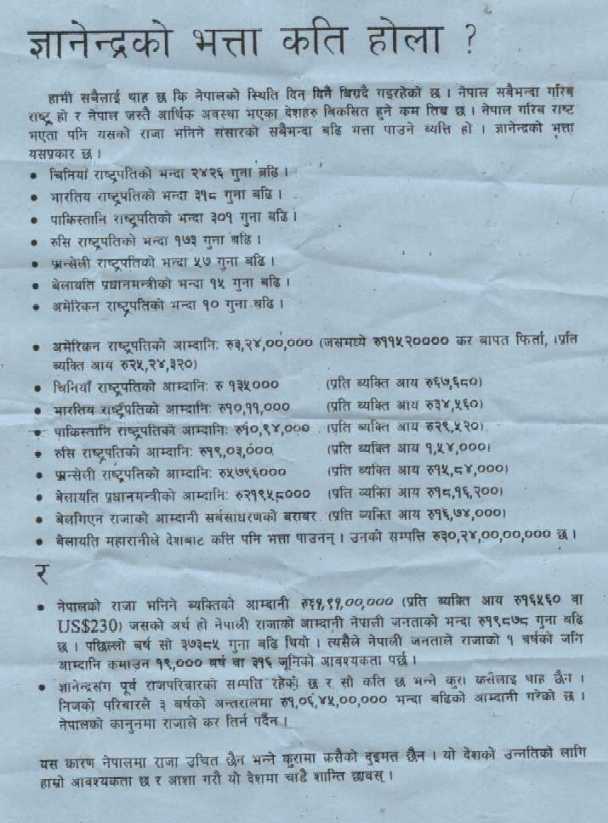 ज्ञानेन्द्रको भत्ता कति होला ?
हामी सबैलाई थाह छ कि नेपालको स्थिति दिन दिनै बिग्रदै गइरहेको छ । नेपाल सबैभन्दा गरिब
राष्ट्र हो र नेपाल जस्तै आर्थिक अवस्था भएका देशहरु बिकसित हुने कम तिब्र छ । नेपाल गरिब राष्ट
भएता पनि यसको राजा भनिने संसारको सबैभन्दा बढि भत्ता पाउने ब्यक्ति हो । ज्ञानेन्द्रको भत्ता
यसप्रकार छ ।
• चिनियाँ राष्ट्रपतिको भन्दा २४२६ गुना बढि ।
• भारतिय राष्ट्रपतिको भन्दा ३१८ गुना बढि ।
• पाकिस्तानि राष्ट्रपतिको भन्दा ३०१ गुना बढि ।
• रुसि राष्ट्रपतिको भन्दा १७३ गुना बढि ।
• फ्रन्सेली राष्ट्रपतिको भन्दा ५७ गुना बढि ।
• बेलायति प्रधानमन्त्रीको भन्दा १५ गुना बढि ।
• अमेरिकन राष्ट्रपतिको भन्दा १० गुना बढि ।
• अमेरिकन राष्ट्रपतिको आम्दानि: रु३,२४,००,००० (जसमध्ये रु११५२०००० कर बापत फिर्ता, (प्रति
ब्यक्ति आय रु२५,२४,३२०)
• चिनियाँ राष्ट्रपतिको आम्दानि: रु १३५००० (प्रति ब्यक्ति आय रु६७,६८०)
• भारतिय राष्ट्रपतिको आम्दानि: रु१०,११,००० (प्रति ब्यक्ति आय रु३४,५६०)
• पाकिस्तानि राष्ट्रपतिको आम्दानि: रु१०,९४,००० (प्रति ब्यक्ति आय रु२९,५२०)
• रुसि राष्ट्रपतिको आम्दानि: रु१९,०३,००० (प्रति ब्यक्ति आय १,५४,०००।
• फ्रन्सेली राष्ट्रपतिको आम्दानि: रु५७९६००० (प्रति ब्यक्ति आय रु१५,८४,०००)
• बेलायति प्रधानमन्त्रीको आम्दानि: रु२१९५८००० (प्रति ब्यक्ति आय रु१८,१६,२००)
• बेलगिएन राजाको आम्दानी सर्बसाधरणको बराबर (प्रति ब्यक्ति आय रु१६,७४,०००)
• बेलायति महारानीले देशबाट कत्ति पनि भत्ता पाउनन् । उनको सम्पत्ति रु३०,२४,००,००,००० छ ।
र
• नेपालको राजा भनिने ब्यक्तिको आम्दानी रु६१,९१,००,००० (प्रति ब्यक्ति आय रु१६५६० वा
US$230) जसको अर्थ हो नेपाली राजाको आम्दानी नेपाली जनताको भन्दा रु१९८७८ गुना बढि
छ । पछिल्लो बर्ष सो ३७३८५ गुना बढि थियो । त्यसैले नेपाली जनताले राजाको १ बर्षको जति
आम्दानि कमाउन १९,००० बर्ष वा ३१६ जुनिको आवश्यकता पर्छ ।
• ज्ञानेन्द्रसंग पूर्व राजपरिबारको सम्पति रहेको छ र सो कति छ भन्ने कुरा कसैलाइ थाह छैन ।
निजको परिबारले ३ बर्षको अन्तरालमा रु१,०६,४५,००,००० भन्दा बढिको आम्दानी गरेको छ ।
नेपालको कानुनमा राजाले कर तिर्न पर्दैन ।
यस कारण नेपालमा राजा उचित छैन भन्ने कुरामा कसैको दुइमत छैन । यो देशको उन्नतिको लागि
हाम्रो आवश्यकता छ र आशा गरौ यो देशमा चाडै शान्ति छावस् ।